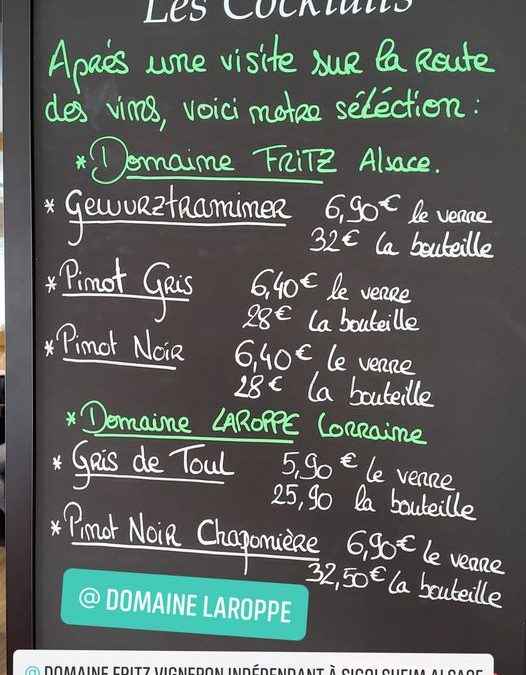 Les Cocktails
Après une visite sur la Route
des vins, voici notre séléction :
* Domaine FRITZ Alsace.
* GEWURZTRAMINER 6,90€ le verre
32€ la bouteille
* Pinot Gris 6,40€ le verre
28€ la bouteille
* Pinot Noir 6,40€ le verre
28€ la bouteille
* Domaine LAROPPE Lorraine
* Gris de Toul 5,90 € le verre
25,90 la bouteille
* Pinot Noir Chaponière 6,90€ le verre
32,50€ la bouteille
@ DOMAINE LAROPPE
@ DOMAINE FRITZ VIGNERON INDÉPENDANT À SIGOLSHEIM ALSACE